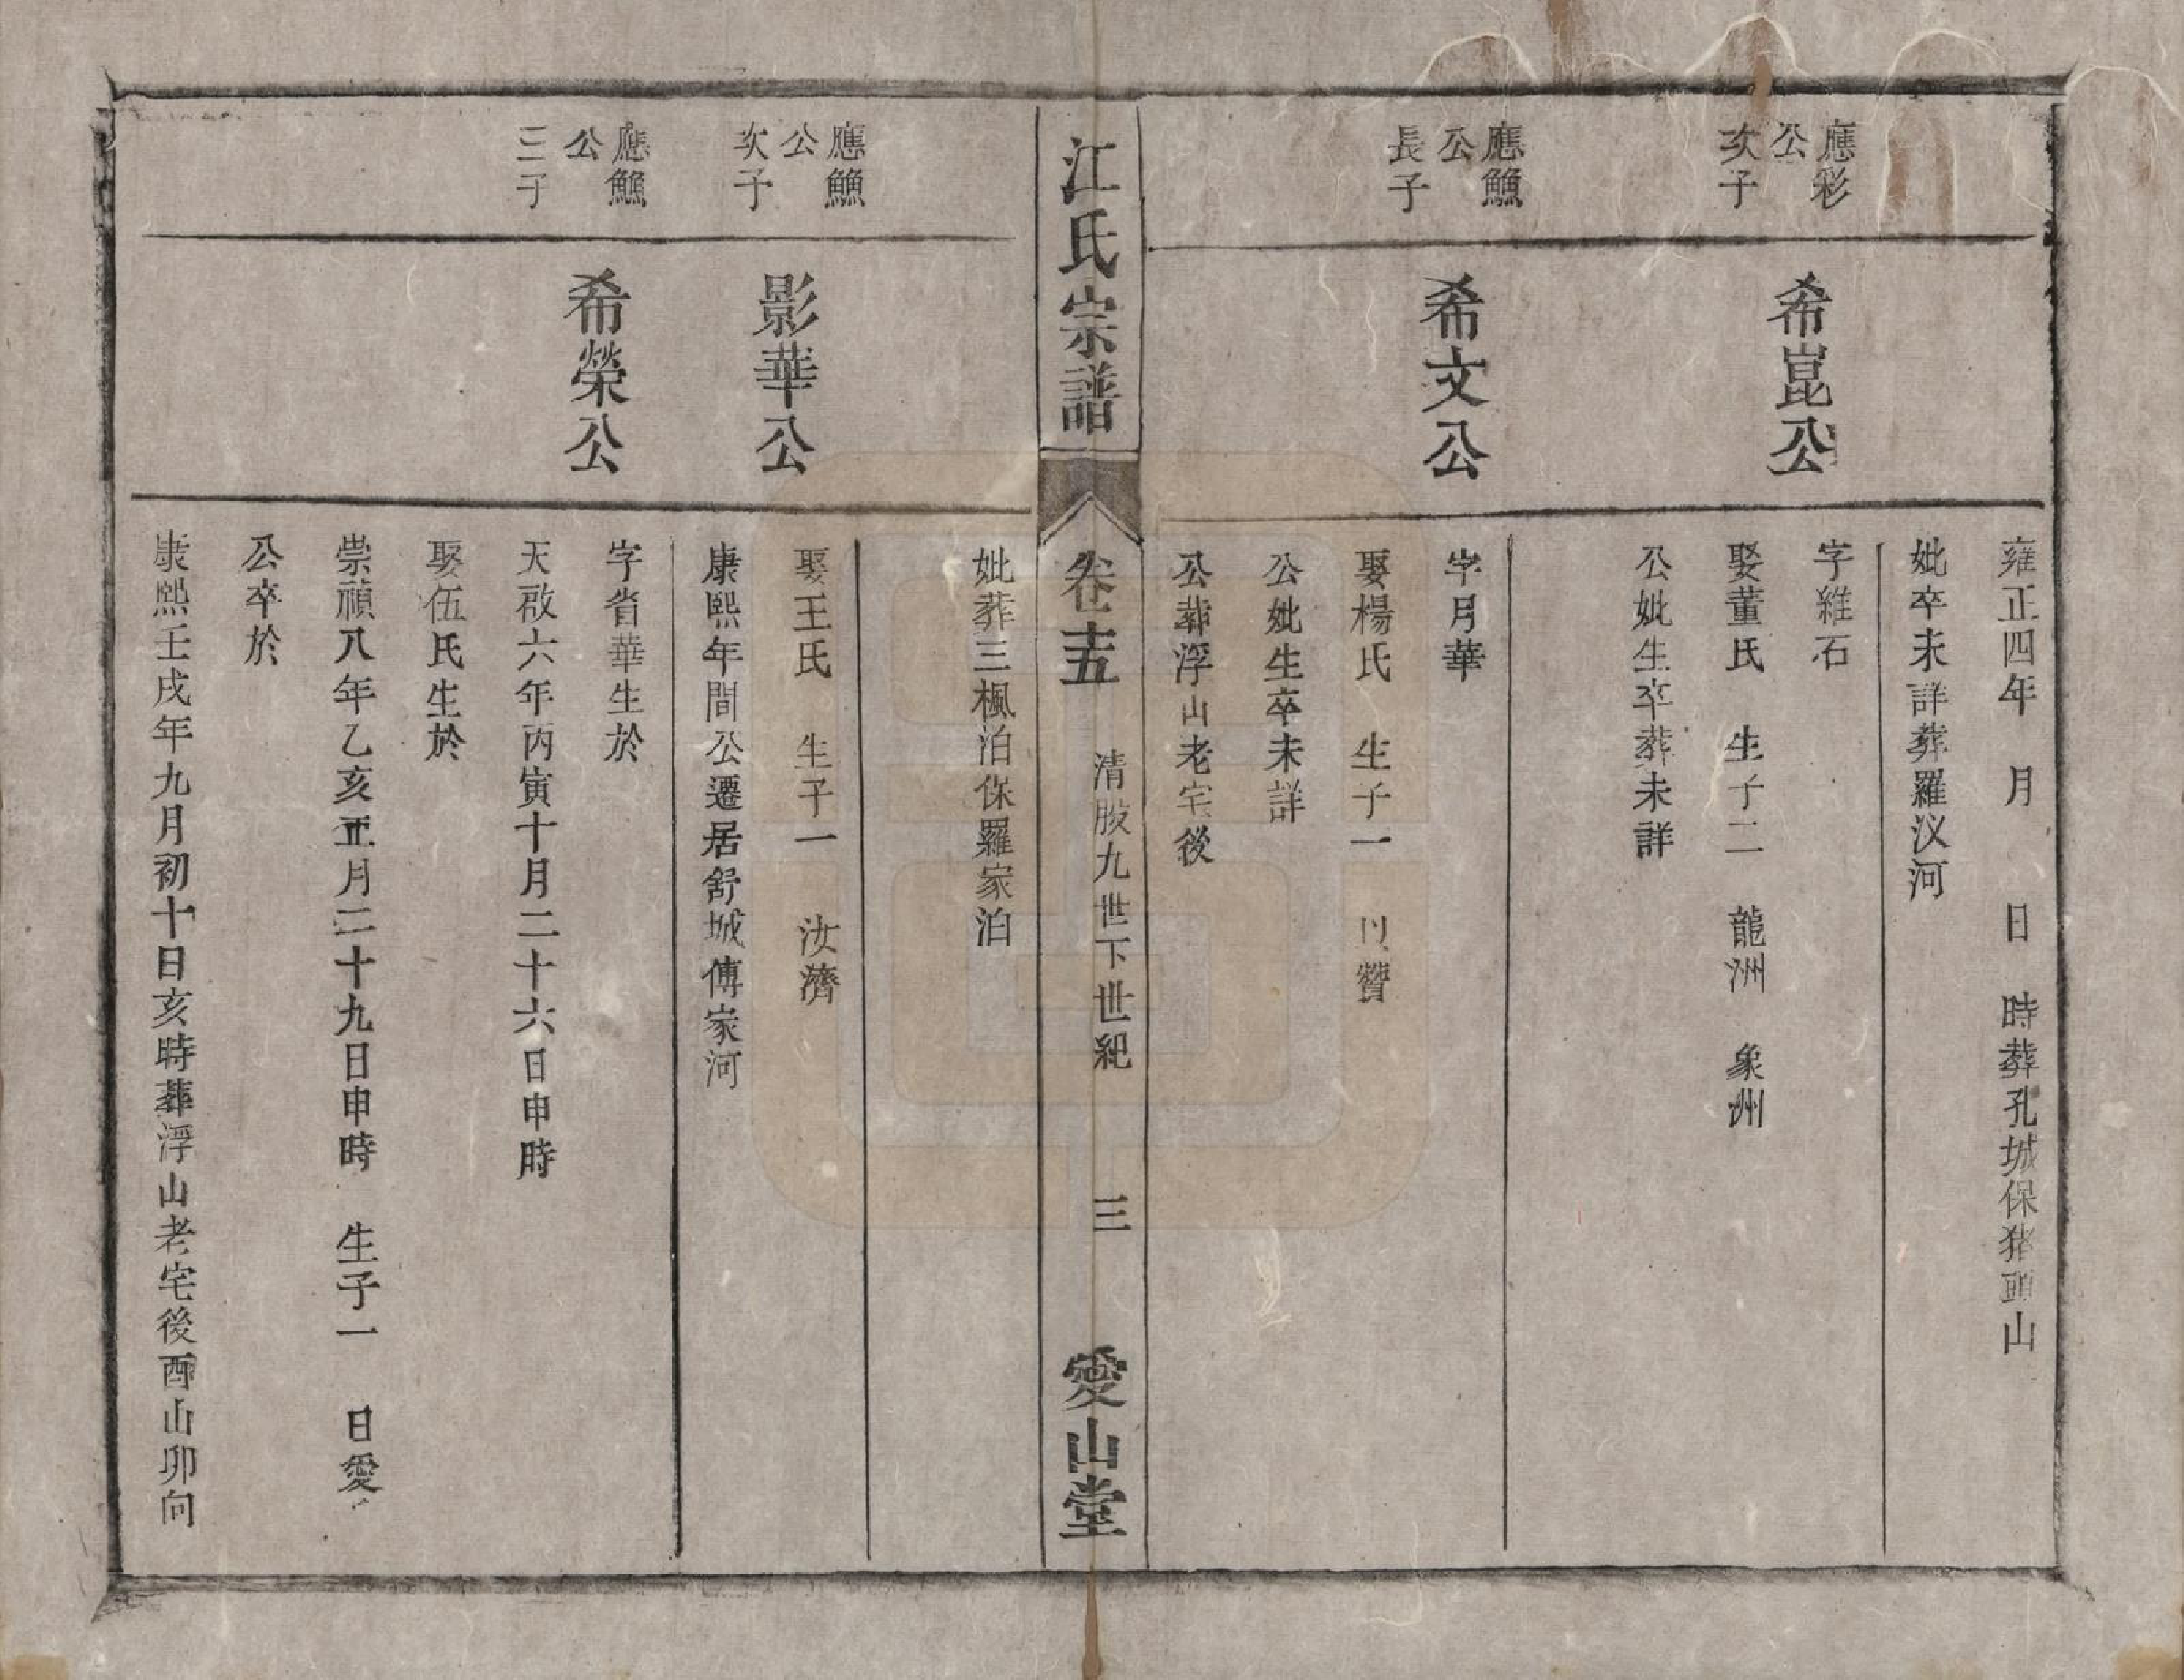 雍正四年　月　　日　時葬孔城保猪頭山
妣卒未詳葬羅汊河
應彩
公
次子
希崑公
字維石
娶董氏　生子二　龍洲　象洲
公妣生卒葬未詳
應鱻
公
長子
希文公
字月華
娶楊氏　生子一　贊
公妣生卒未詳
公葬浮山老宅後
江氏宗譜
卷十五
清股九世下世紀
三
愛山堂
妣葬三楓泊保羅家泊
應鱻
公
次子
影華公
娶王氏　生子一　汝濟
康熙年間公遷居舒城傅家河
應鱻
公
三子
希榮公
字省華生於
天啟六年丙寅十月二十六日申時
娶伍氏生於
崇禎八年乙亥正月二十九日申時　生子一　日愛
公卒於
康熙壬戌年九月初十日亥時葬浮山老宅後酉山卯向